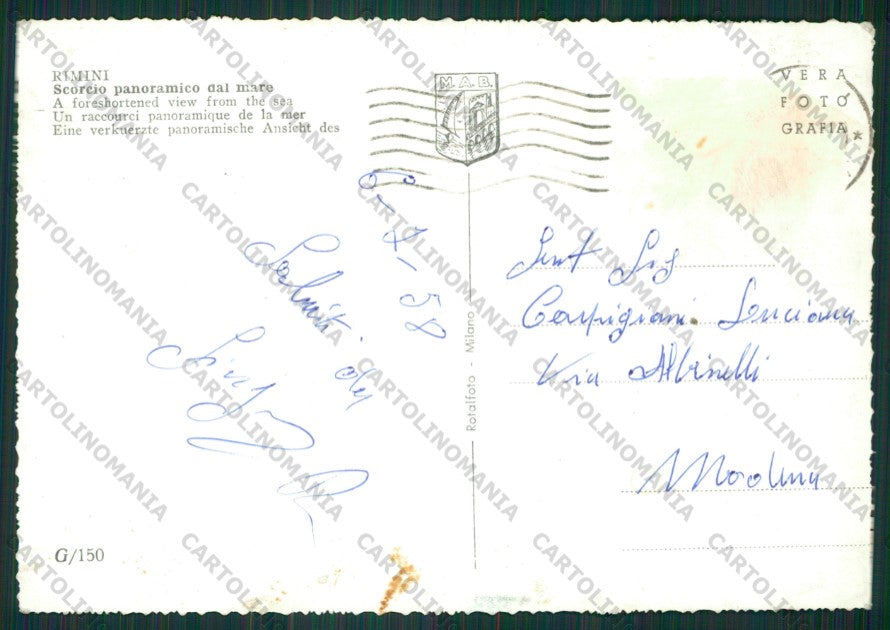 RIMINI
Scorcio panoramico dal mare
A foreshortened view from the sea
Un raccourci panoramique de la mer
Eine verkuerzte panoramische Ansicht des
M.A.B.
VERA
FOTO
GRAFIA
6-7-58
Saluti da
Gent Sig
Carpigiani Luciana
Via Albinelli
Modena
Rotalfoto - Milano
G/150
CARTOLINOMANIA